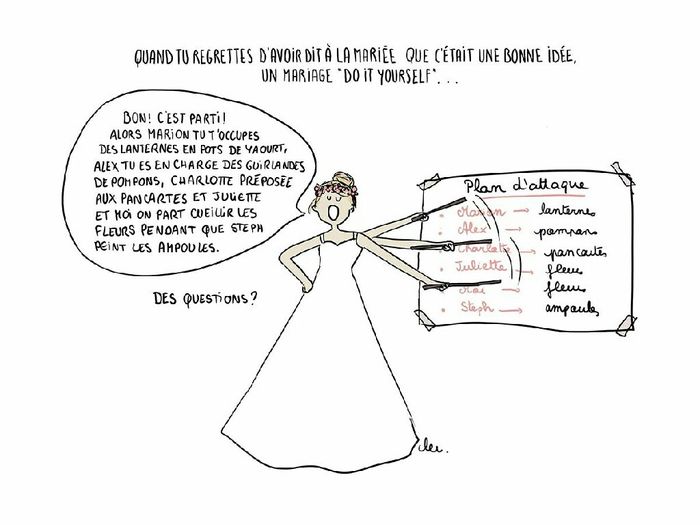 QUAND TU REGRETTES D'AVOIR DIT À LA MARIÉE QUE C'ÉTAIT UNE BONNE IDÉE,
UN MARIAGE "DO IT YOURSELF"...
BON! C'EST PARTI!
ALORS MARION TU T'OCCUPES
DES LANTERNES EN POTS DE YAOURT,
ALEX TU ES EN CHARGE DES GUIRLANDES
DE POMPONS, CHARLOTTE PRÉPOSÉE
AUX PANCARTES ET JULIETTE
ET MOI ON PART CUEILLIR LES
FLEURS PENDANT QUE STEPH
PEINT LES AMPOULES.
DES QUESTIONS?
Plan d'attaque
• Marion → lanternes
• Alex → pompons
• Charlotte → pancartes
• Juliette → fleurs
• Moi → fleurs
• Steph → ampoules